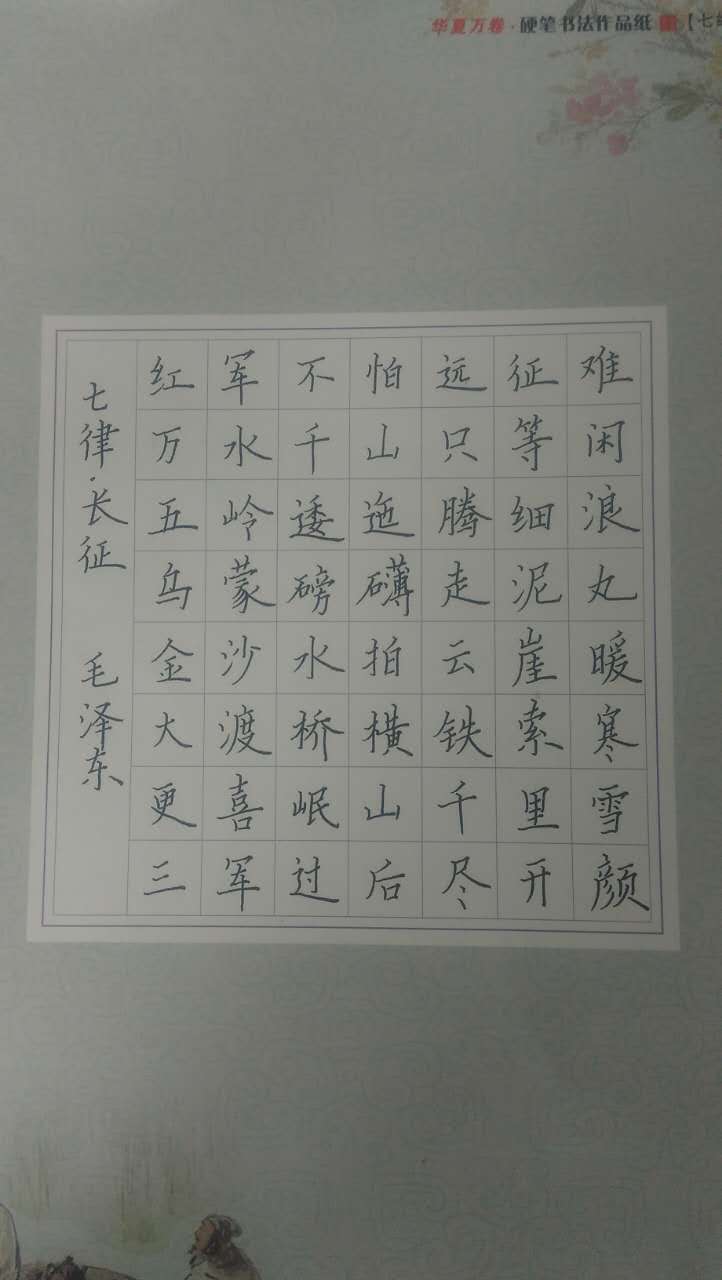 华夏万卷·硬笔书法作品纸【七
七律·长征 毛泽东
红军不怕远征难
万水千山只等闲
五岭逶迤腾细浪
乌蒙磅礴走泥丸
金沙水拍云崖暖
大渡桥横铁索寒
更喜岷山千里雪
三军过后尽开颜